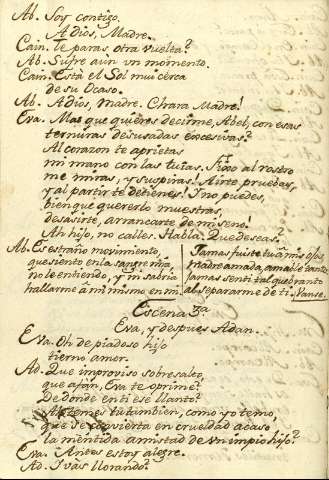 Ab. Soy contigo.
Adios, Madre.
Cain. Te paras otra vuelta?
Ab. Sufre aun un momento.
Cain. Está el Sol mui cerca
de su Ocaso.
Ab. Adios, Madre. Chara Madre!
Eva. Mas que quieres decirme, Abel, con esas
ternuras desusadas excesivas?
Al corazon te aprietas
mi mano con las tuias. Fixo al rostro
me miras, y suspiras! Airte pruebas,
y al partir te detienes! I no puedes,
bien que quererlo muestras,
desasirte, arrancarte de mi seno!
Ah hijo, no calles. Habla. Que deseas?
Ab. Es estraño movimiento,
que siento en la sangre mia,
no le entiendo, y mi sabria
hallarme á mi mismo en mi.
Jamas fuiste tu á mis ojos,
madre amada, amable tanto,
jamas senti tal quebranto
al separarme de ti. Vanse.
Escena 3ª
Eva, y despues Adan.
Eva. Oh de piadoso hijo
tierno amor.
Ad. Que improviso sobresalto,
que afán, Eva te oprime?
De donde en ti ese llanto?
Ah temes tu tambien, como yo temo,
que se convierta en crueldad acaso
la mentida amistad de un impio hijo?
Eva. Antes estoy alegre.
Ad. I vás llorando?